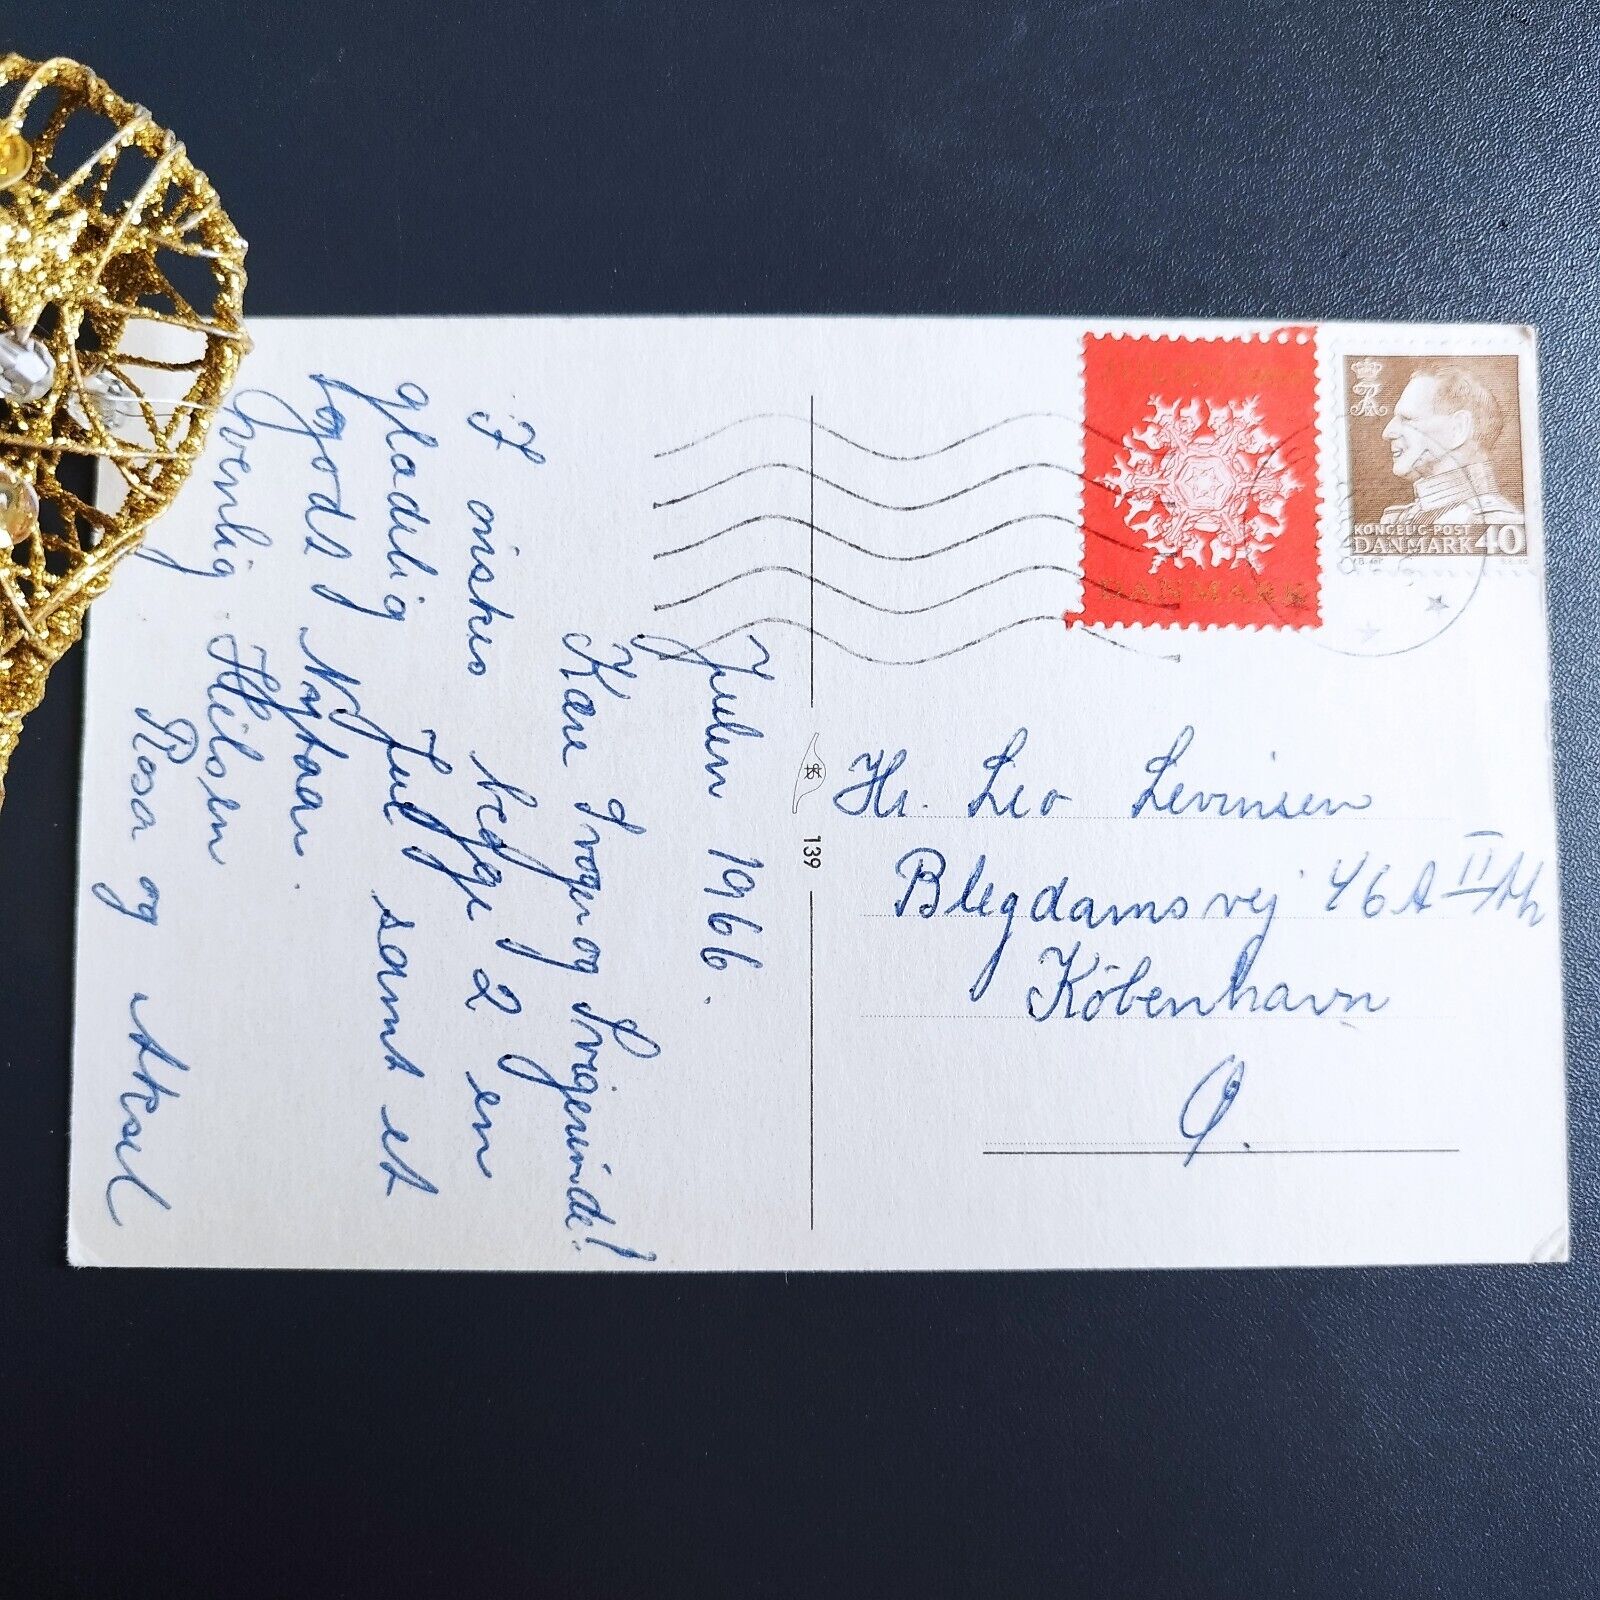 Julen 1966.
Kære Svoger og Svigerinde!
I ønskes begge 2 en
glædelig Jul samt et
godt Nytaar.
Venlig Hilsen
Rosa og Aksel
139
DANMARK
KONGELIG POST
DANMARK 40
Hr. Leo Levinsen
Blegdamsvej 46A II th
København
Ø.